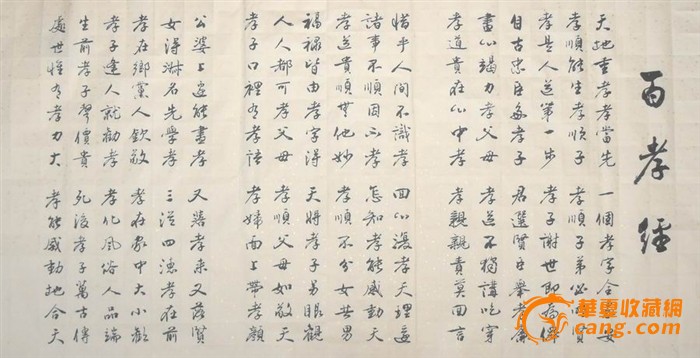 百孝經
天地重孝孝當先 一個孝字全家安
孝順能生孝順子 孝順子弟必明賢
孝是人道第一步 孝子謝世即為僊
自古忠臣多孝子 君選賢臣舉孝廉
盡心竭力孝父母 孝道不獨講吃穿
孝道貴在心中孝 孝親親責莫回言
惜乎人間不識孝 回心復孝天理還
諸事不順因不孝 怎知孝能感動天
孝道貴順無他妙 孝順不分女共男
福祿皆由孝字得 天將孝子另眼觀
人人都可孝父母 孝順父母如敬天
孝子口裡有孝語 孝婦面上帶孝顏
公婆上邊能盡孝 又落孝來又落賢
女得淑名先學孝 三從四德孝在前
孝在鄉黨人欽敬 孝在家中大小歡
孝子逢人就勸孝 孝化風俗人品端
生前孝子聲價貴 死後孝子萬古傳
處世惟有孝力大 孝能感動地合天
华夏收藏网
cang.com